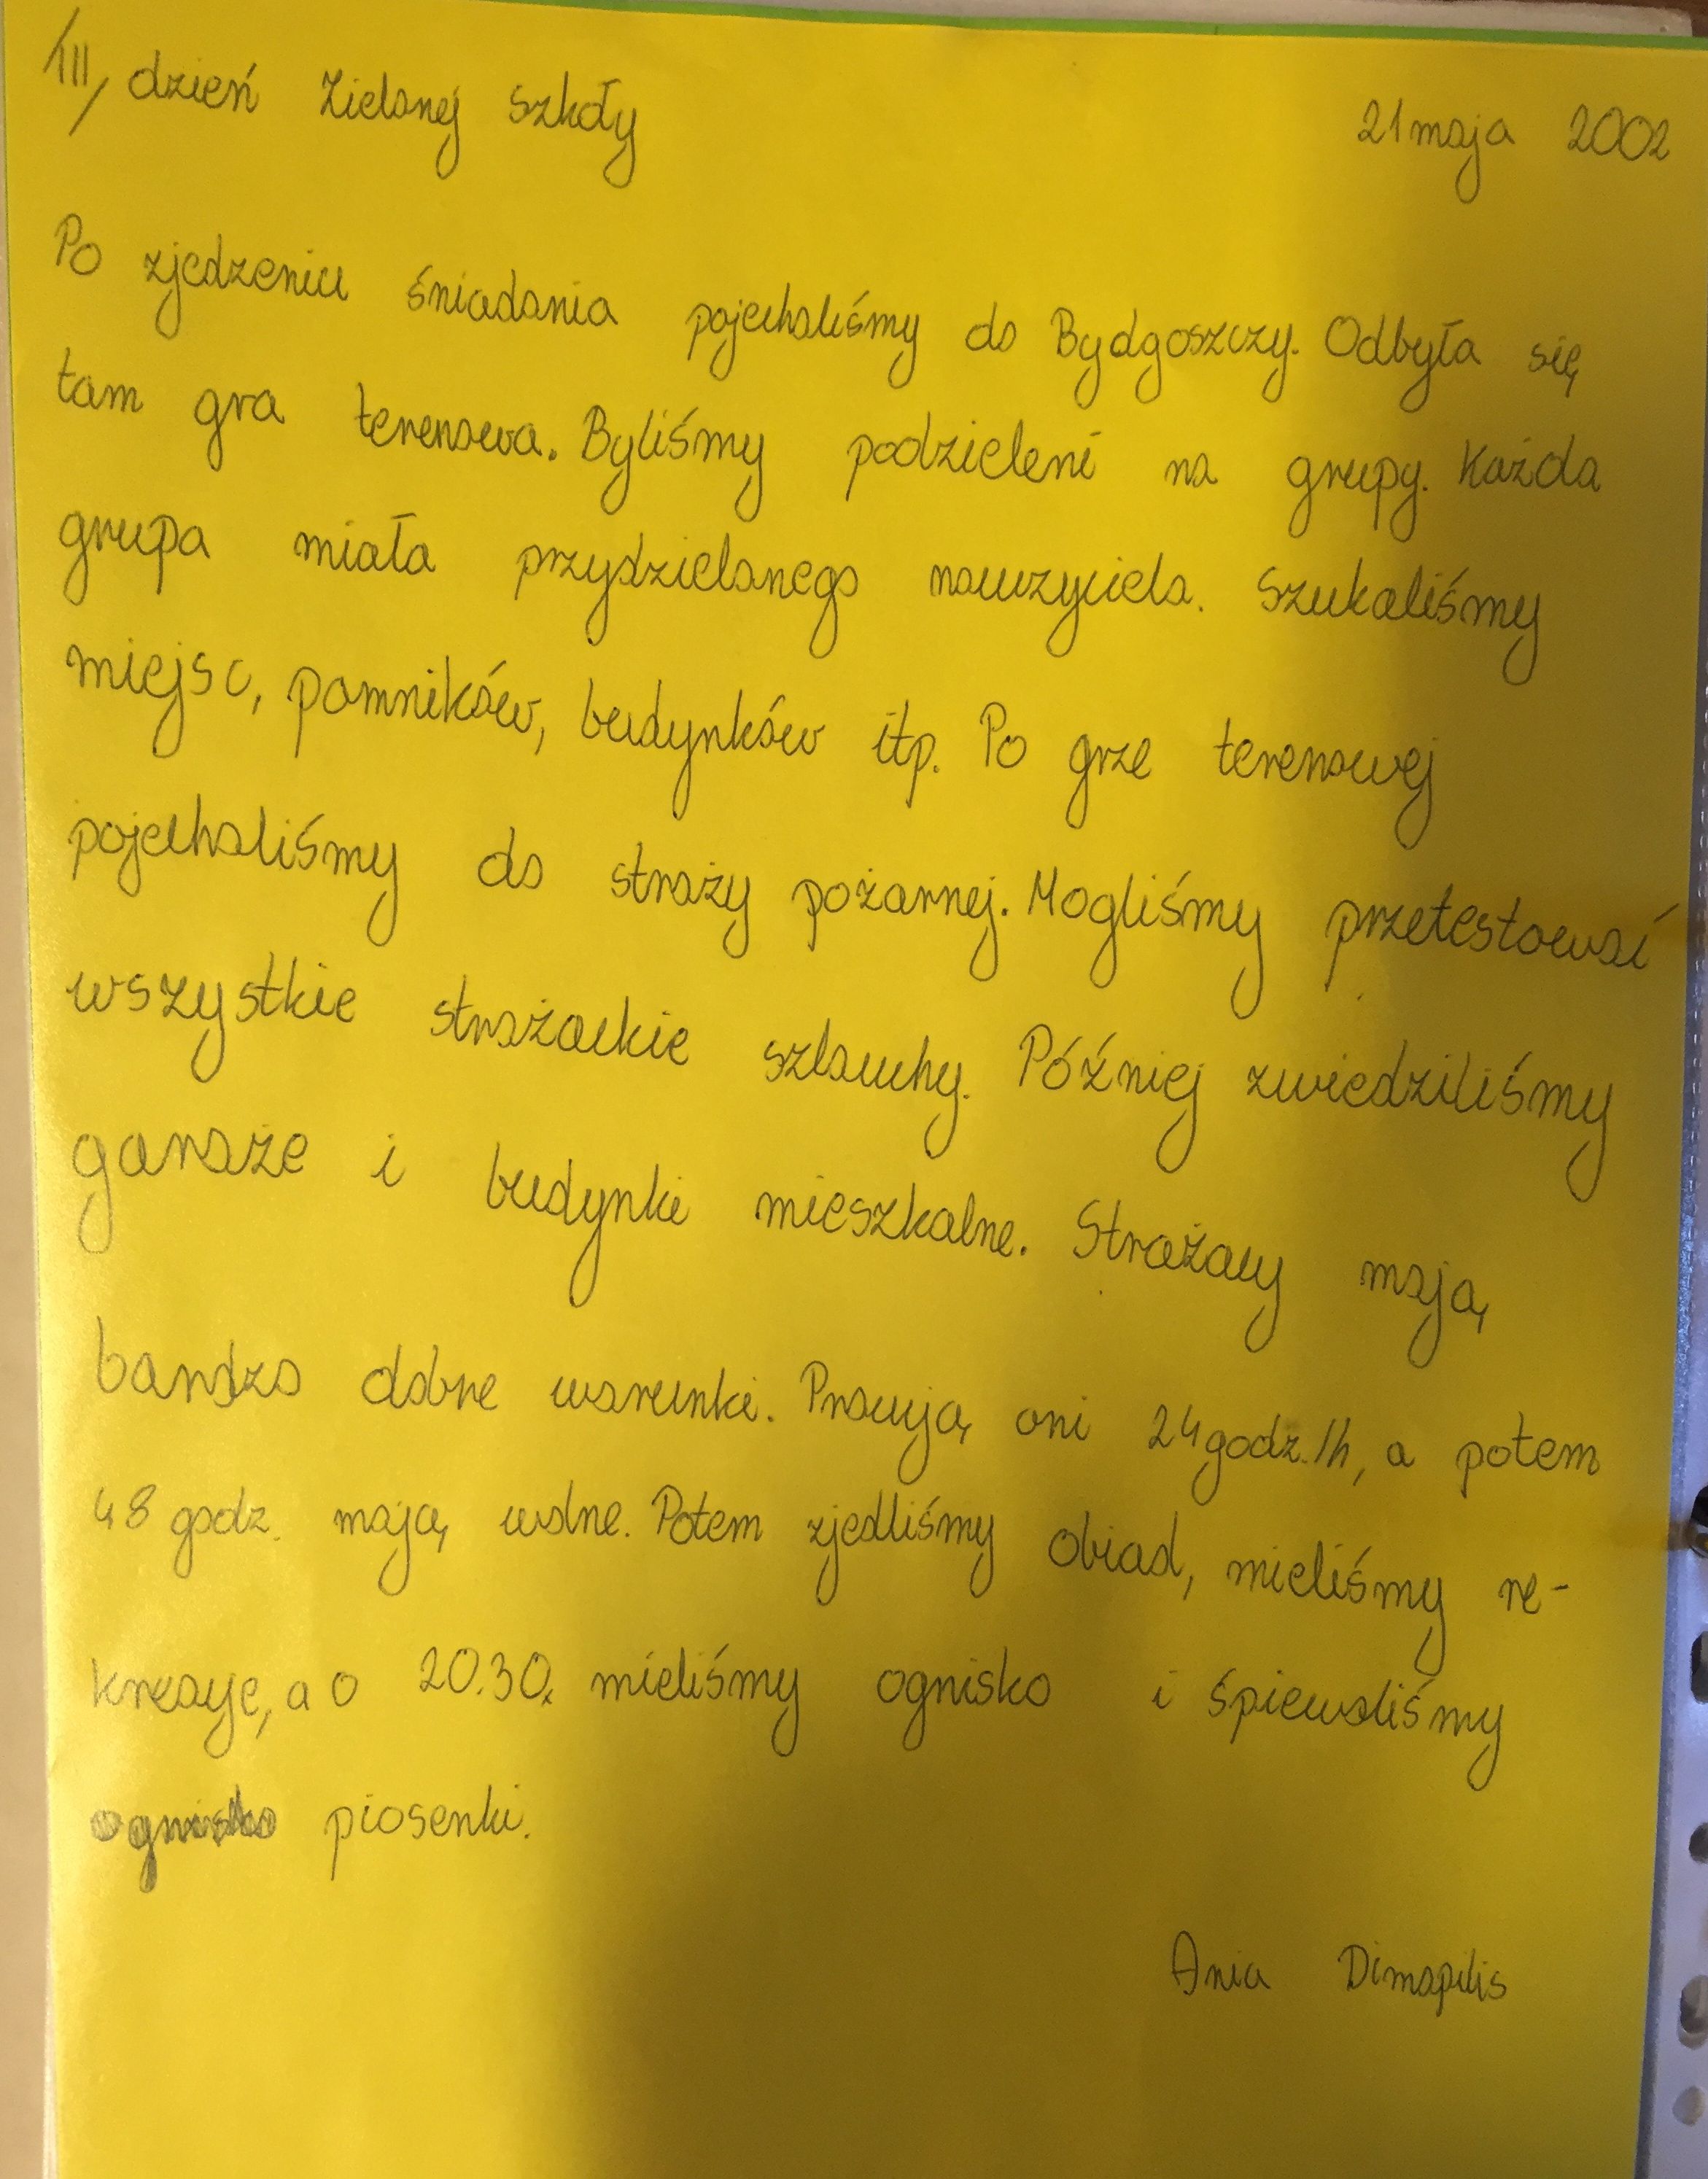 III, dzień Zielonej Szkoły 21 maja 2002
Po zjedzeniu śniadania pojechaliśmy do Bydgoszczy. Odbyła się
tam gra terenowa. Byliśmy podzieleni na grupy. Każda
grupa miała przydzielonego nauczyciela. Szukaliśmy
miejsc, pomników, budynków itp. Po grze terenowej
pojechaliśmy do straży pożarnej. Mogliśmy przetestować
wszystkie strażackie szlauchy. Później zwiedziliśmy
garaże i budynki mieszkalne. Strażacy mają
bardzo dobre warunki. Pracują oni 24 godz./h, a potem
48 godz. mają wolne. Potem zjedliśmy obiad, mieliśmy re-
kreację, a o 20.30. mieliśmy ognisko i śpiewaliśmy
ognisko piosenki.
Ania Dimopilis